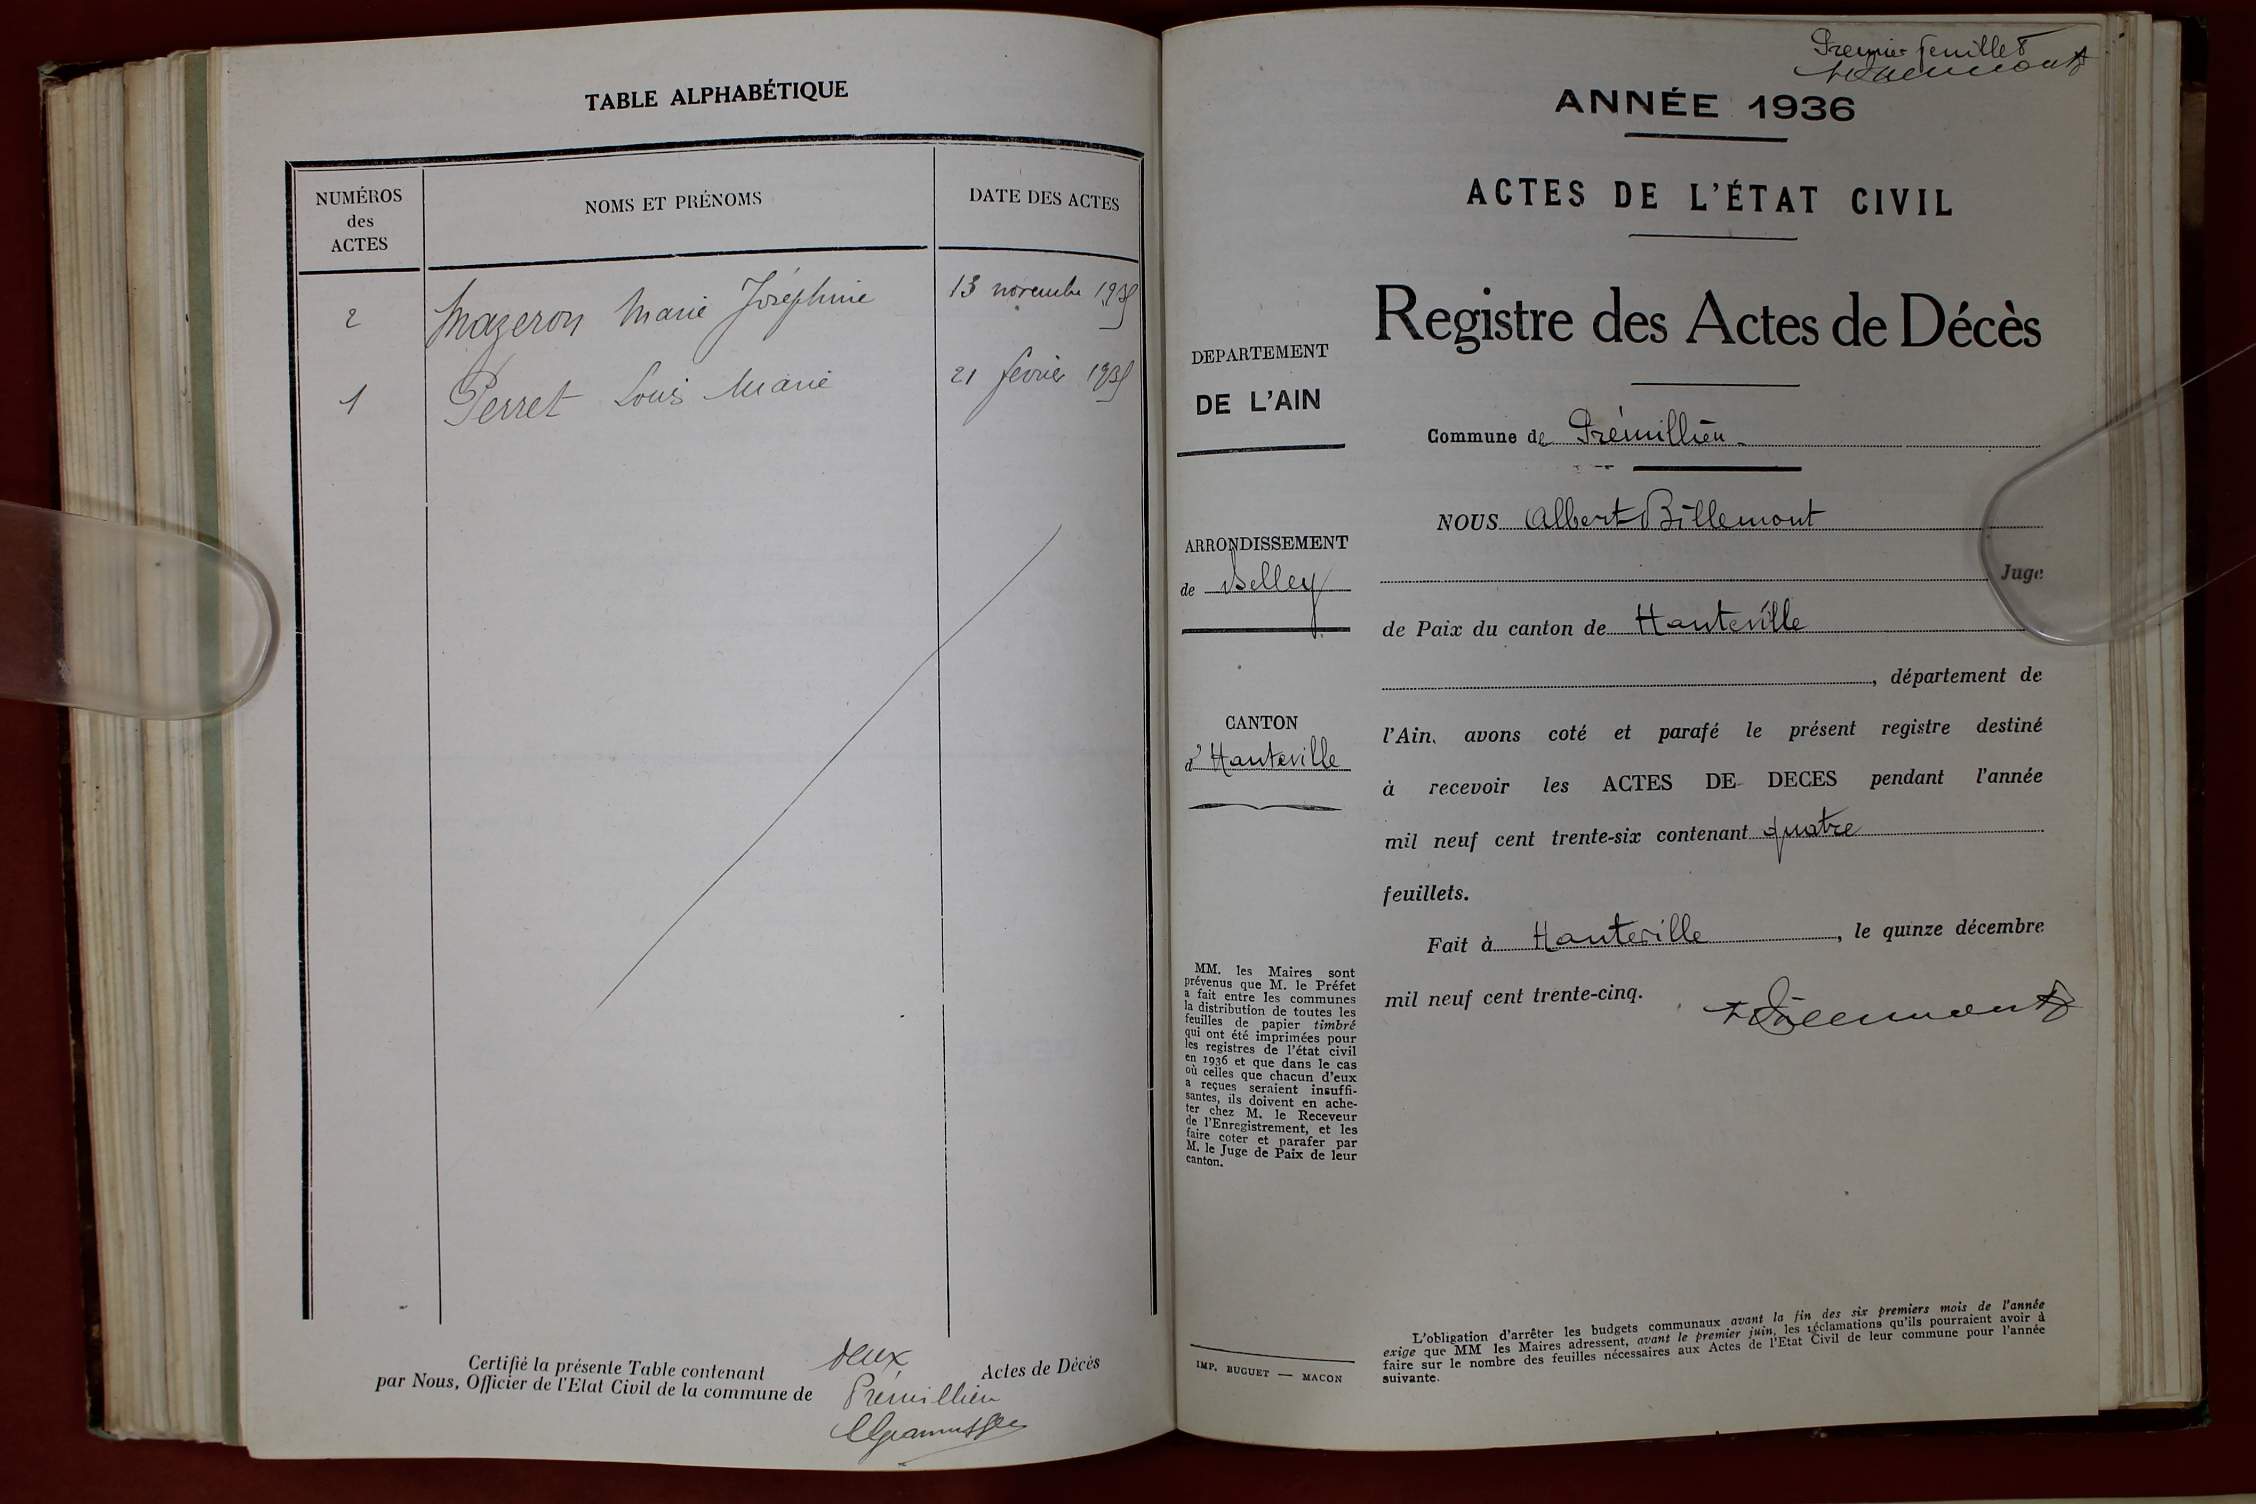 TABLE ALPHABÉTIQUE
NUMÉROS
des
ACTES
NOMS ET PRÉNOMS
DATE DES ACTES
2 Mazeron Marie Joséphine 13 novembre 1935
1 Perret Louis Marie 21 février 1935
Certifié la présente Table contenant deux Actes de Décès
par Nous, Officier de l'Etat Civil de la commune de Prémillieu
Premier feuillet
ANNÉE 1936
ACTES DE L'ÉTAT CIVIL
Registre des Actes de Décès
DEPARTEMENT
DE L'AIN
ARRONDISSEMENT
de Belley
CANTON
d'Hauteville
MM. les Maires sont
prévenus que M. le Préfet
a fait entre les communes
la distribution de toutes les
feuilles de papier timbré
qui ont été imprimées pour
les registres de l'état civil
en 1936 et que dans le cas
où celles que chacun d'eux
a reçues seraient insuffi-
santes, ils doivent en ache-
ter chez M. le Receveur
de l'Enregistrement, et les
faire coter et parafer par
M. le Juge de Paix de leur
canton.
IMP. BUGUET — MACON
Commune de Prémillieu
NOUS Albert Billemont
Juge
de Paix du canton de Hauteville
, département de
l'Ain, avons coté et parafé le présent registre destiné
à recevoir les ACTES DE DECES pendant l'année
mil neuf cent trente-six contenant quatre
feuillets.
Fait à Hauteville, le quinze décembre
mil neuf cent trente-cinq.
L'obligation d'arrêter les budgets communaux avant la fin des six premiers mois de l'année
exige que MM les Maires adressent, avant le premier juin, les réclamations qu'ils pourraient avoir à
faire sur le nombre des feuilles nécessaires aux Actes de l'Etat Civil de leur commune pour l'année
suivante.